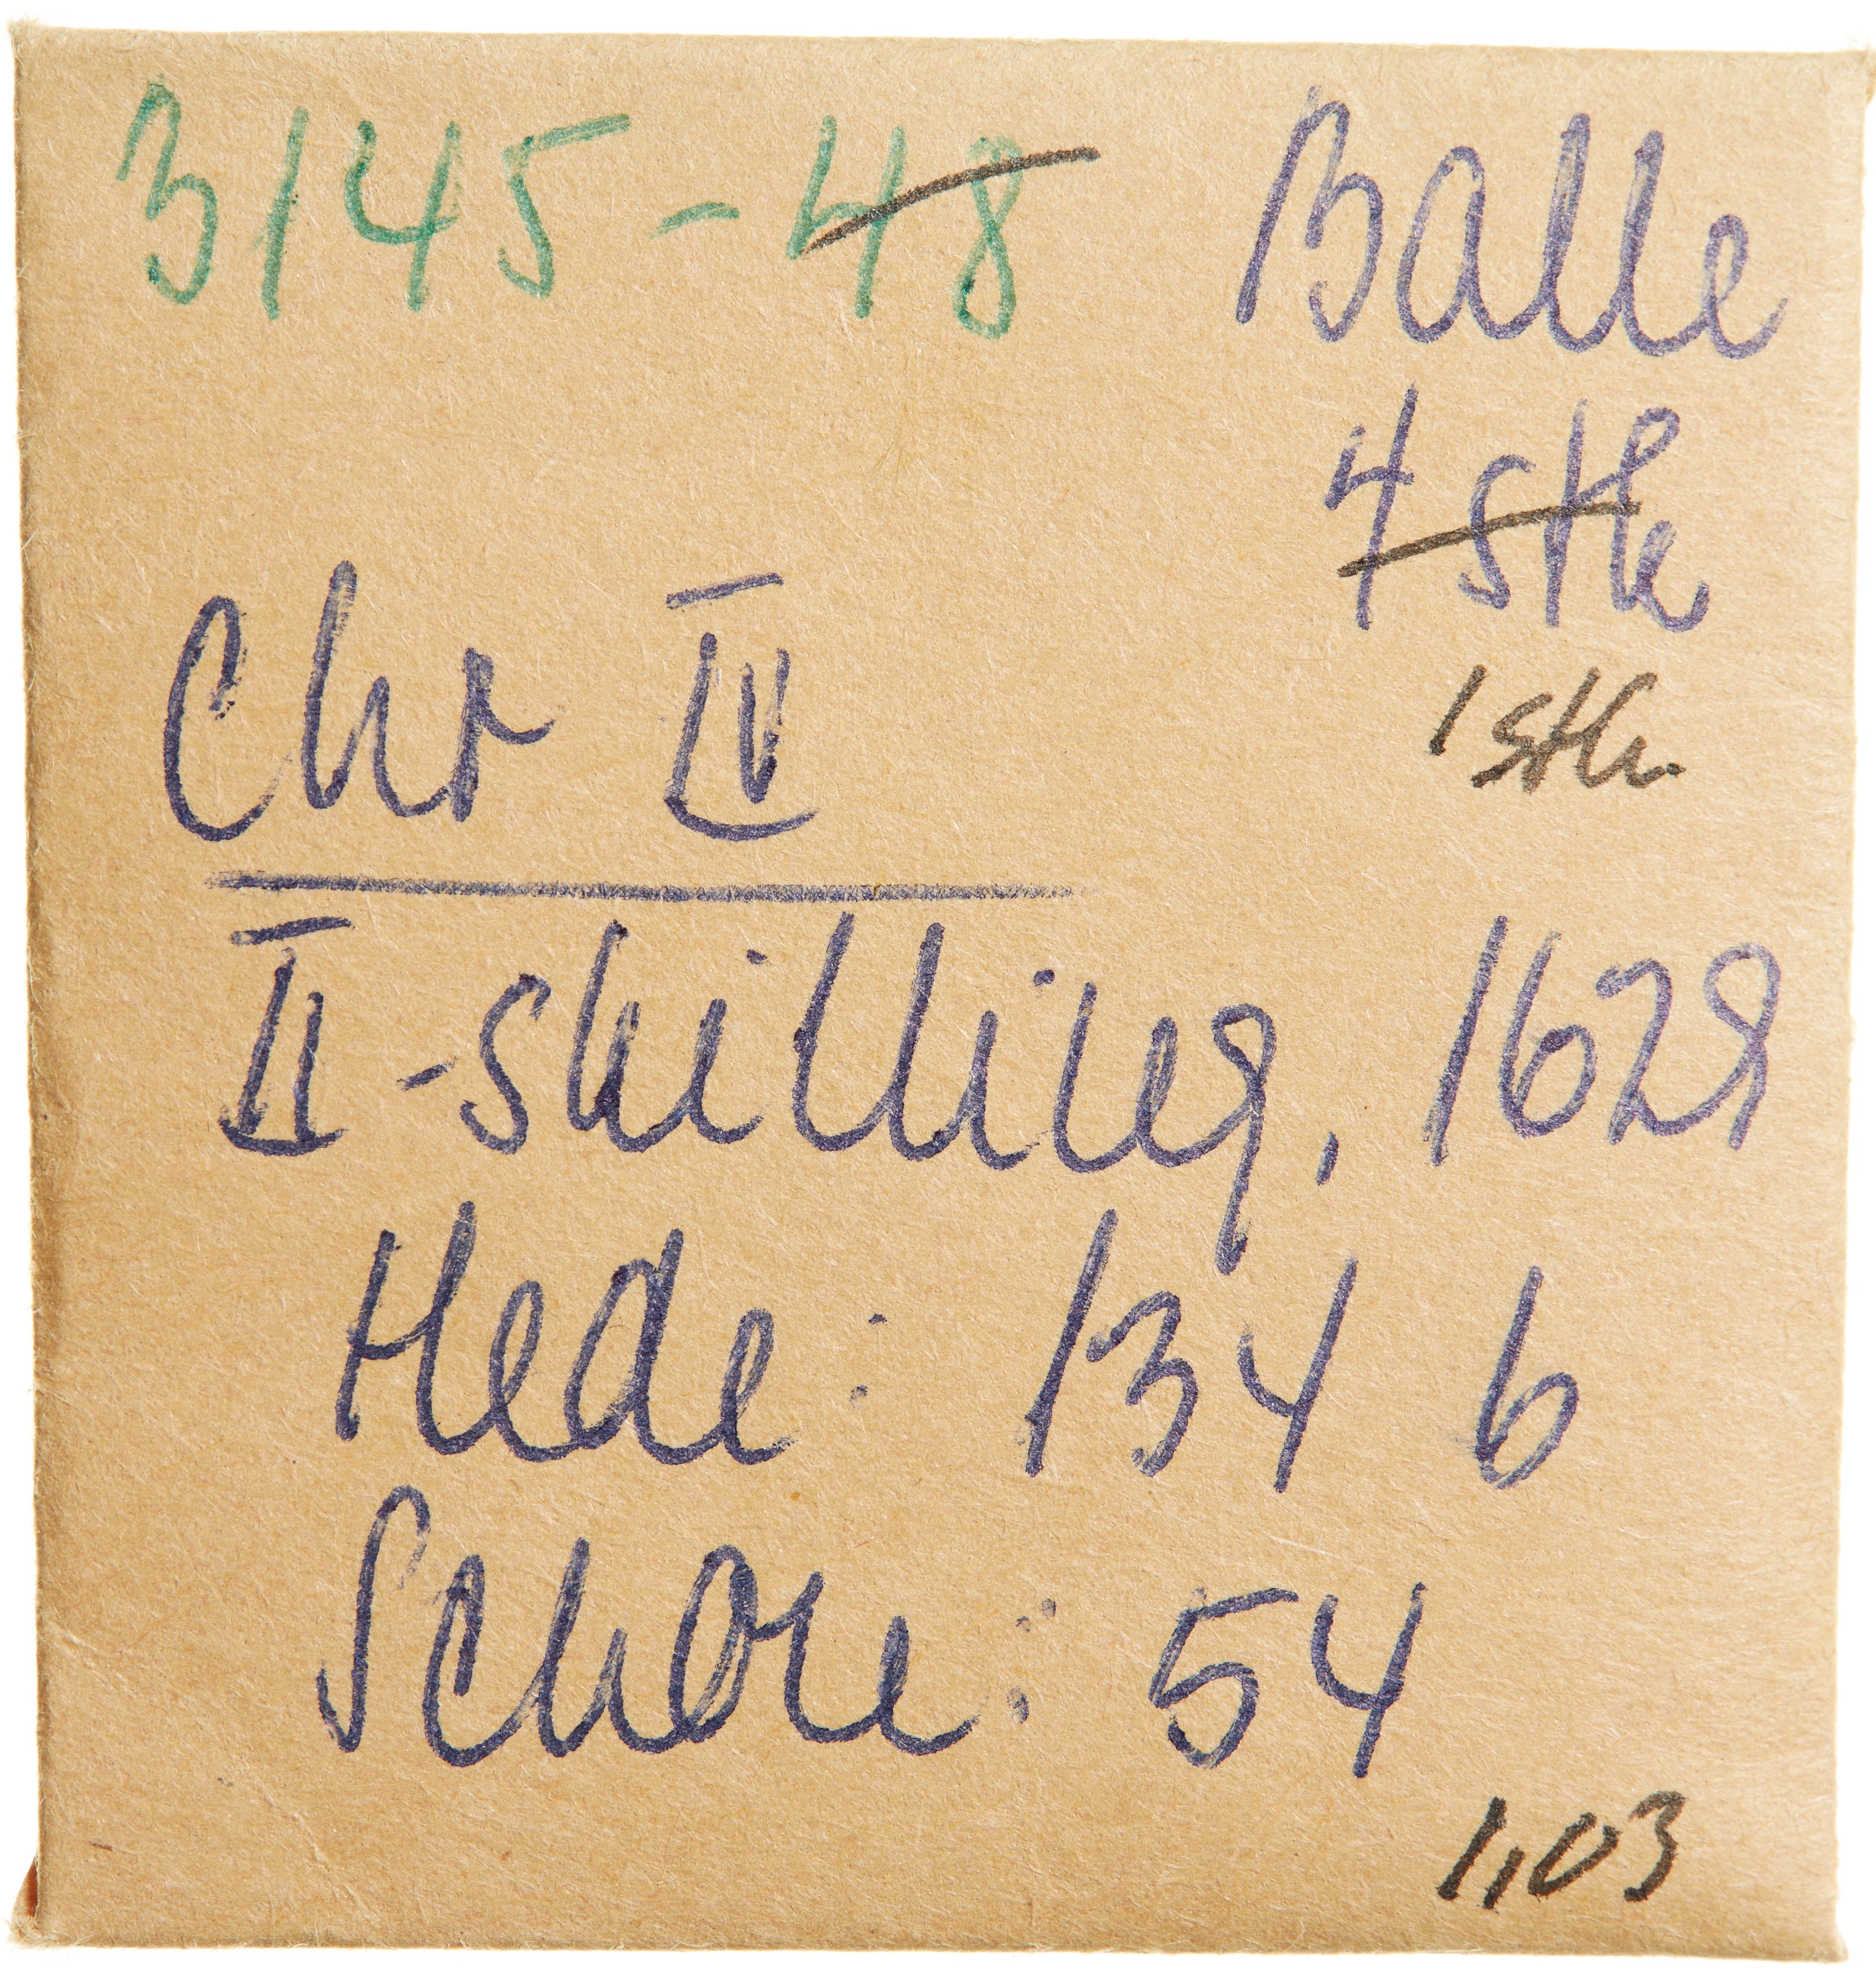 3145-48 Balle
4 stk
1 stk.
Chr IV
II-skilling, 1628
Hede: 134 b
Schou: 54
1,03